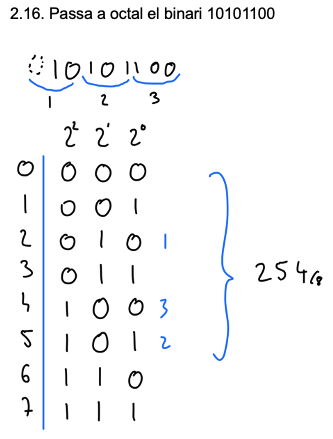 2.16. Passa a octal el binari 10101100
010101100
1 2 3
2² 2¹ 2⁰
0 0 0 0
1 0 0 1
2 0 1 0 1
3 0 1 1
4 1 0 0 3
5 1 0 1 2
6 1 1 0
7 1 1 1
254/8